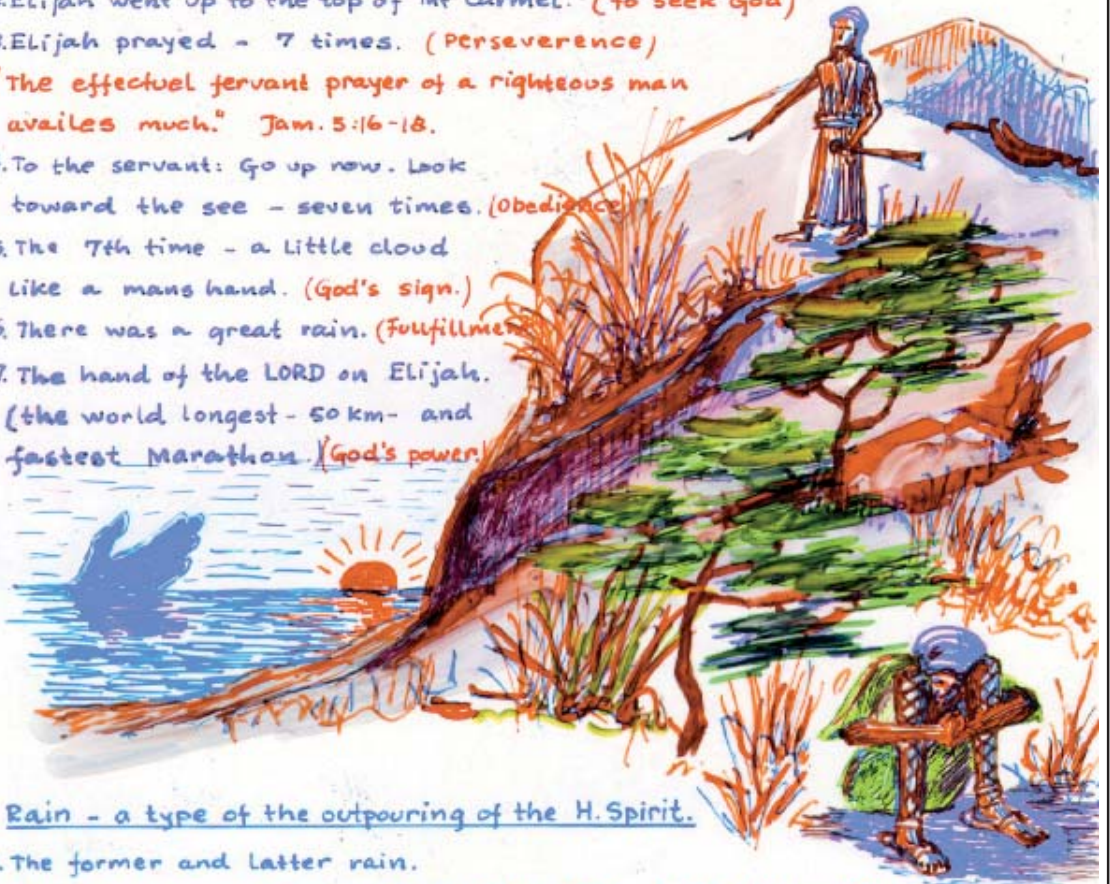 .Elijah went up to the top of Mt Carmel. (To seek God)
.Elijah prayed - 7 times. (Perseverence)
"The effectuel fervant prayer of a righteous man
availes much." Jam. 5:16-18.
.To the servant: Go up now. Look
toward the see - seven times. (Obedience)
.The 7th time - a little cloud
like a mans hand. (God's sign.)
.There was a great rain. (Fullfillment
7. The hand of the LORD on Elijah.
(the world longest - 50 km - and
fastest Marathon.) (God's power)
Rain - a type of the outpouring of the H. Spirit.
.The former and latter rain.